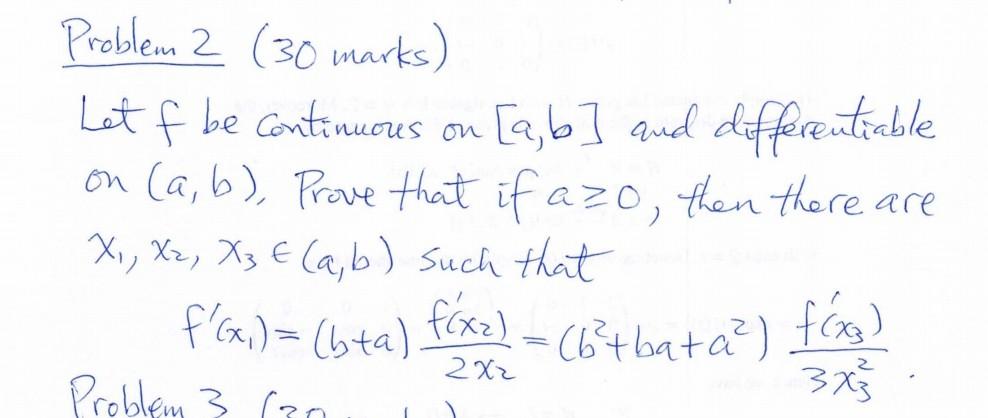 Problem 2 (30 marks)
Let f be continuous on [a,b] and differentiable
on (a,b). Prove that if a≥0, then there are
x₁, x₂, x₃ ∈ (a,b) such that
f'(x₁) = (b+a) f'(x₂)/2x₂ = (b²+ba+a²) f'(x₃)/3x₃² .
Problem 3 (30